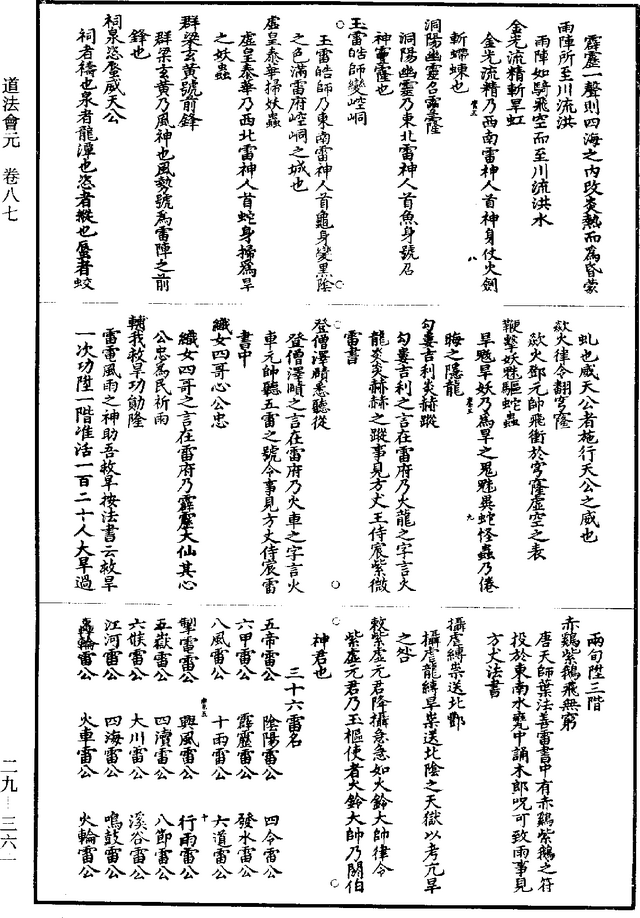 道法會元　卷八七
二九—三六一
霹靂一聲則四海之內改炎熱而爲昏蒙
雨陣所至川流洪
雨陣如騎飛空而至川流洪水
金光流精斬旱虹
金光流精乃西南雷神人首神身仗火劍
斬螮蝀也
洞陽幽靈召靈隆
洞陽幽靈乃東北雷神人首魚身號召
神靈隆也
玉雷皓師變崆峒
玉雷皓師乃東南雷神人首龜身變黑陰
之色滿雷府崆峒之城也
虛皇泰華掃妖蟲
虛皇泰華乃西北雷神人首蛇身掃爲旱
之妖蟲
群梁玄黃號前鋒
群梁玄黃乃風神也風勢號爲雷陣之前
鋒也
祠泉恣蜃威天公
祠者禱也泉者龍潭也恣者縱也蜃者蛟
虬也威天公者施行天公之威也
歘火律令翻穹隆
歘火鄧元帥飛衝於穹隆虛空之表
鞭擊妖魃驅蛇蟲
旱魃旱妖乃爲旱之鬼魅異蛇怪蟲乃倦
晦之隱龍
勾婁吉利炎赫蹤
勾婁吉利之言在雷府乃火龍之字言火
龍炎炎赫赫之蹤事見方丈王侍宸紫微
雷書
登僧澤賾悉聽從
登僧澤賾之言在雷府乃火車之字言火
車元帥聽五雷之號令事見方丈侍宸雷
書中
纖女四哥心公忠
纖女四哥之言在雷府乃霹靂大仙其心
公忠爲民祈雨
輔我救旱功勛隆
雷電風雨之神助吾救旱按法書云救旱
一次功陞一階准活一百二十人大旱過
兩旬陞三階
赤鷄紫鵝飛無窮
唐天師葉法善雷書中有赤鷄紫鵝之符
投於東南水甕中誦木郎呪可致雨事見
方丈法書
攝虐縛祟送北酆
攝虐龍縛旱祟送北陰之天獄以考亢旱
之咎
敕紫虛元君降攝急急如火鈴大帥律令
紫虛元君乃玉樞使者火鈴大帥乃閼伯
神君也
三十六雷名
五帝雷公　陰陽雷公　四令雷公
六甲雷公　霹靂雷公　發水雷公
八風雷公　十雨雷公　六道雷公
掣電雷公　興風雷公　行雨雷公
五嶽雷公　四瀆雷公　八節雷公
六候雷公　大川雷公　溪谷雷公
江河雷公　四海雷公　鳴鼓雷公
轟輪雷公　火車雷公　火輪雷公